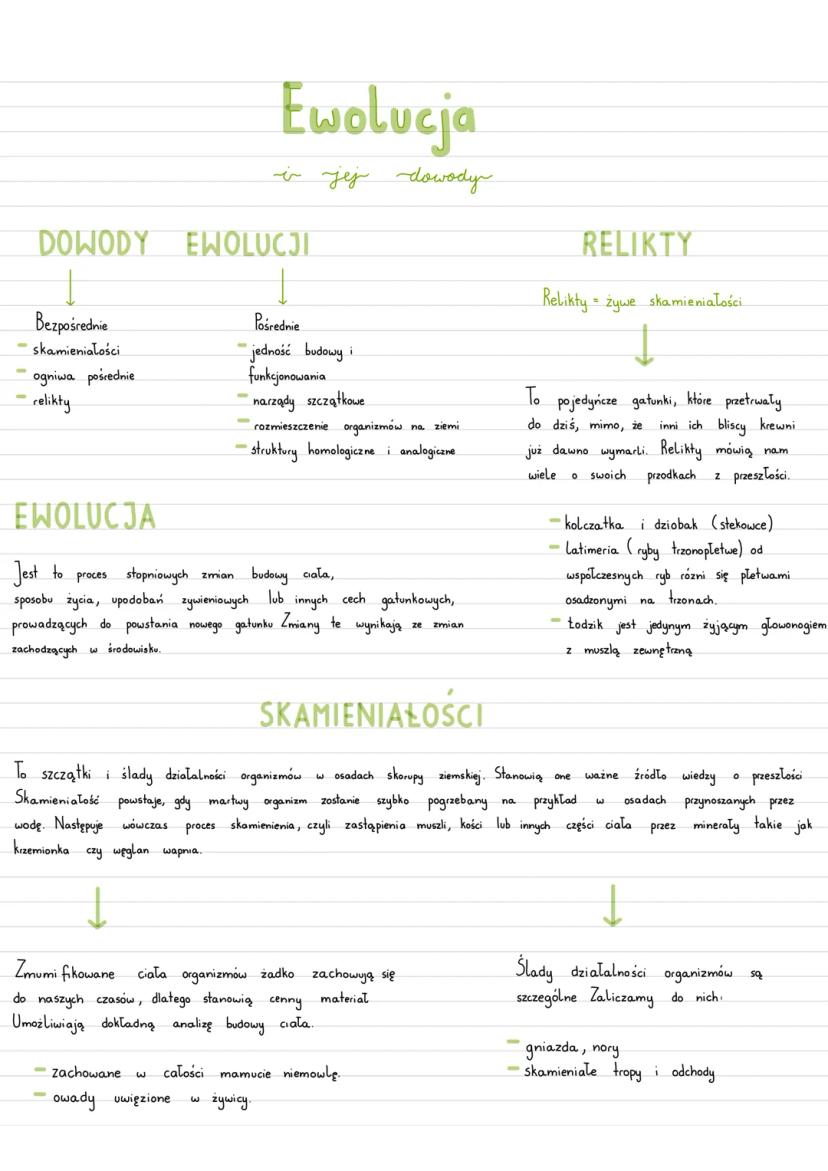 Ewolucja
i jej dowody
DOWODY EWOLUCJI
Bezpośrednie
- skamieniałości
- ogniwa pośrednie
- relikty
Pośrednie
- jedność budowy i
funkcjonowania
- narządy szczątkowe
- rozmieszczenie organizmów na ziemi
- struktury homologiczne i analogiczne
RELIKTY
Relikty = żywe skamieniałości
To pojedyńcze gatunki, które przetrwały
do dziś, mimo, że inni ich bliscy krewni
już dawno wymarli. Relikty mówią nam
wiele o swoich przodkach z przeszłości.
- kolczatka i dziobak (stekowce)
- latimeria (ryby trzonopłetwe) od
współczesnych ryb różni się płetwami
osadzonymi na trzonach.
- Łodzik jest jedynym żyjącym głowonogiem
z muszlą zewnętrzną
EWOLUCJA
Jest to proces stopniowych zmian budowy ciała,
sposobu życia, upodobań żywieniowych lub innych cech gatunkowych,
prowadzących do powstania nowego gatunku Zmiany te wynikają ze zmian
zachodzących w środowisku.
SKAMIENIAŁOŚCI
To szczątki i ślady działalności organizmów w osadach skorupy ziemskiej. Stanowią one ważne źródło wiedzy o przeszłości
Skamieniałość powstaje, gdy martwy organizm zostanie szybko pogrzebany na przykład w osadach przynoszanych przez
wodę. Następuje wówczas proces skamienienia, czyli zastąpienia muszli, kości lub innych części ciała przez minerały takie jak
krzemionka czy węglan wapnia.
Zmumifikowane ciała organizmów żadko zachowują się
do naszych czasów, dlatego stanowią cenny materiał
Umożliwiają dokładną analizę budowy ciała.
- zachowane w całości mamucie niemowlę.
- owady uwięzione w żywicy.
Ślady działalności organizmów są
szczególne Zaliczamy do nich:
- gniazda, nory
- skamieniałe tropy i odchody